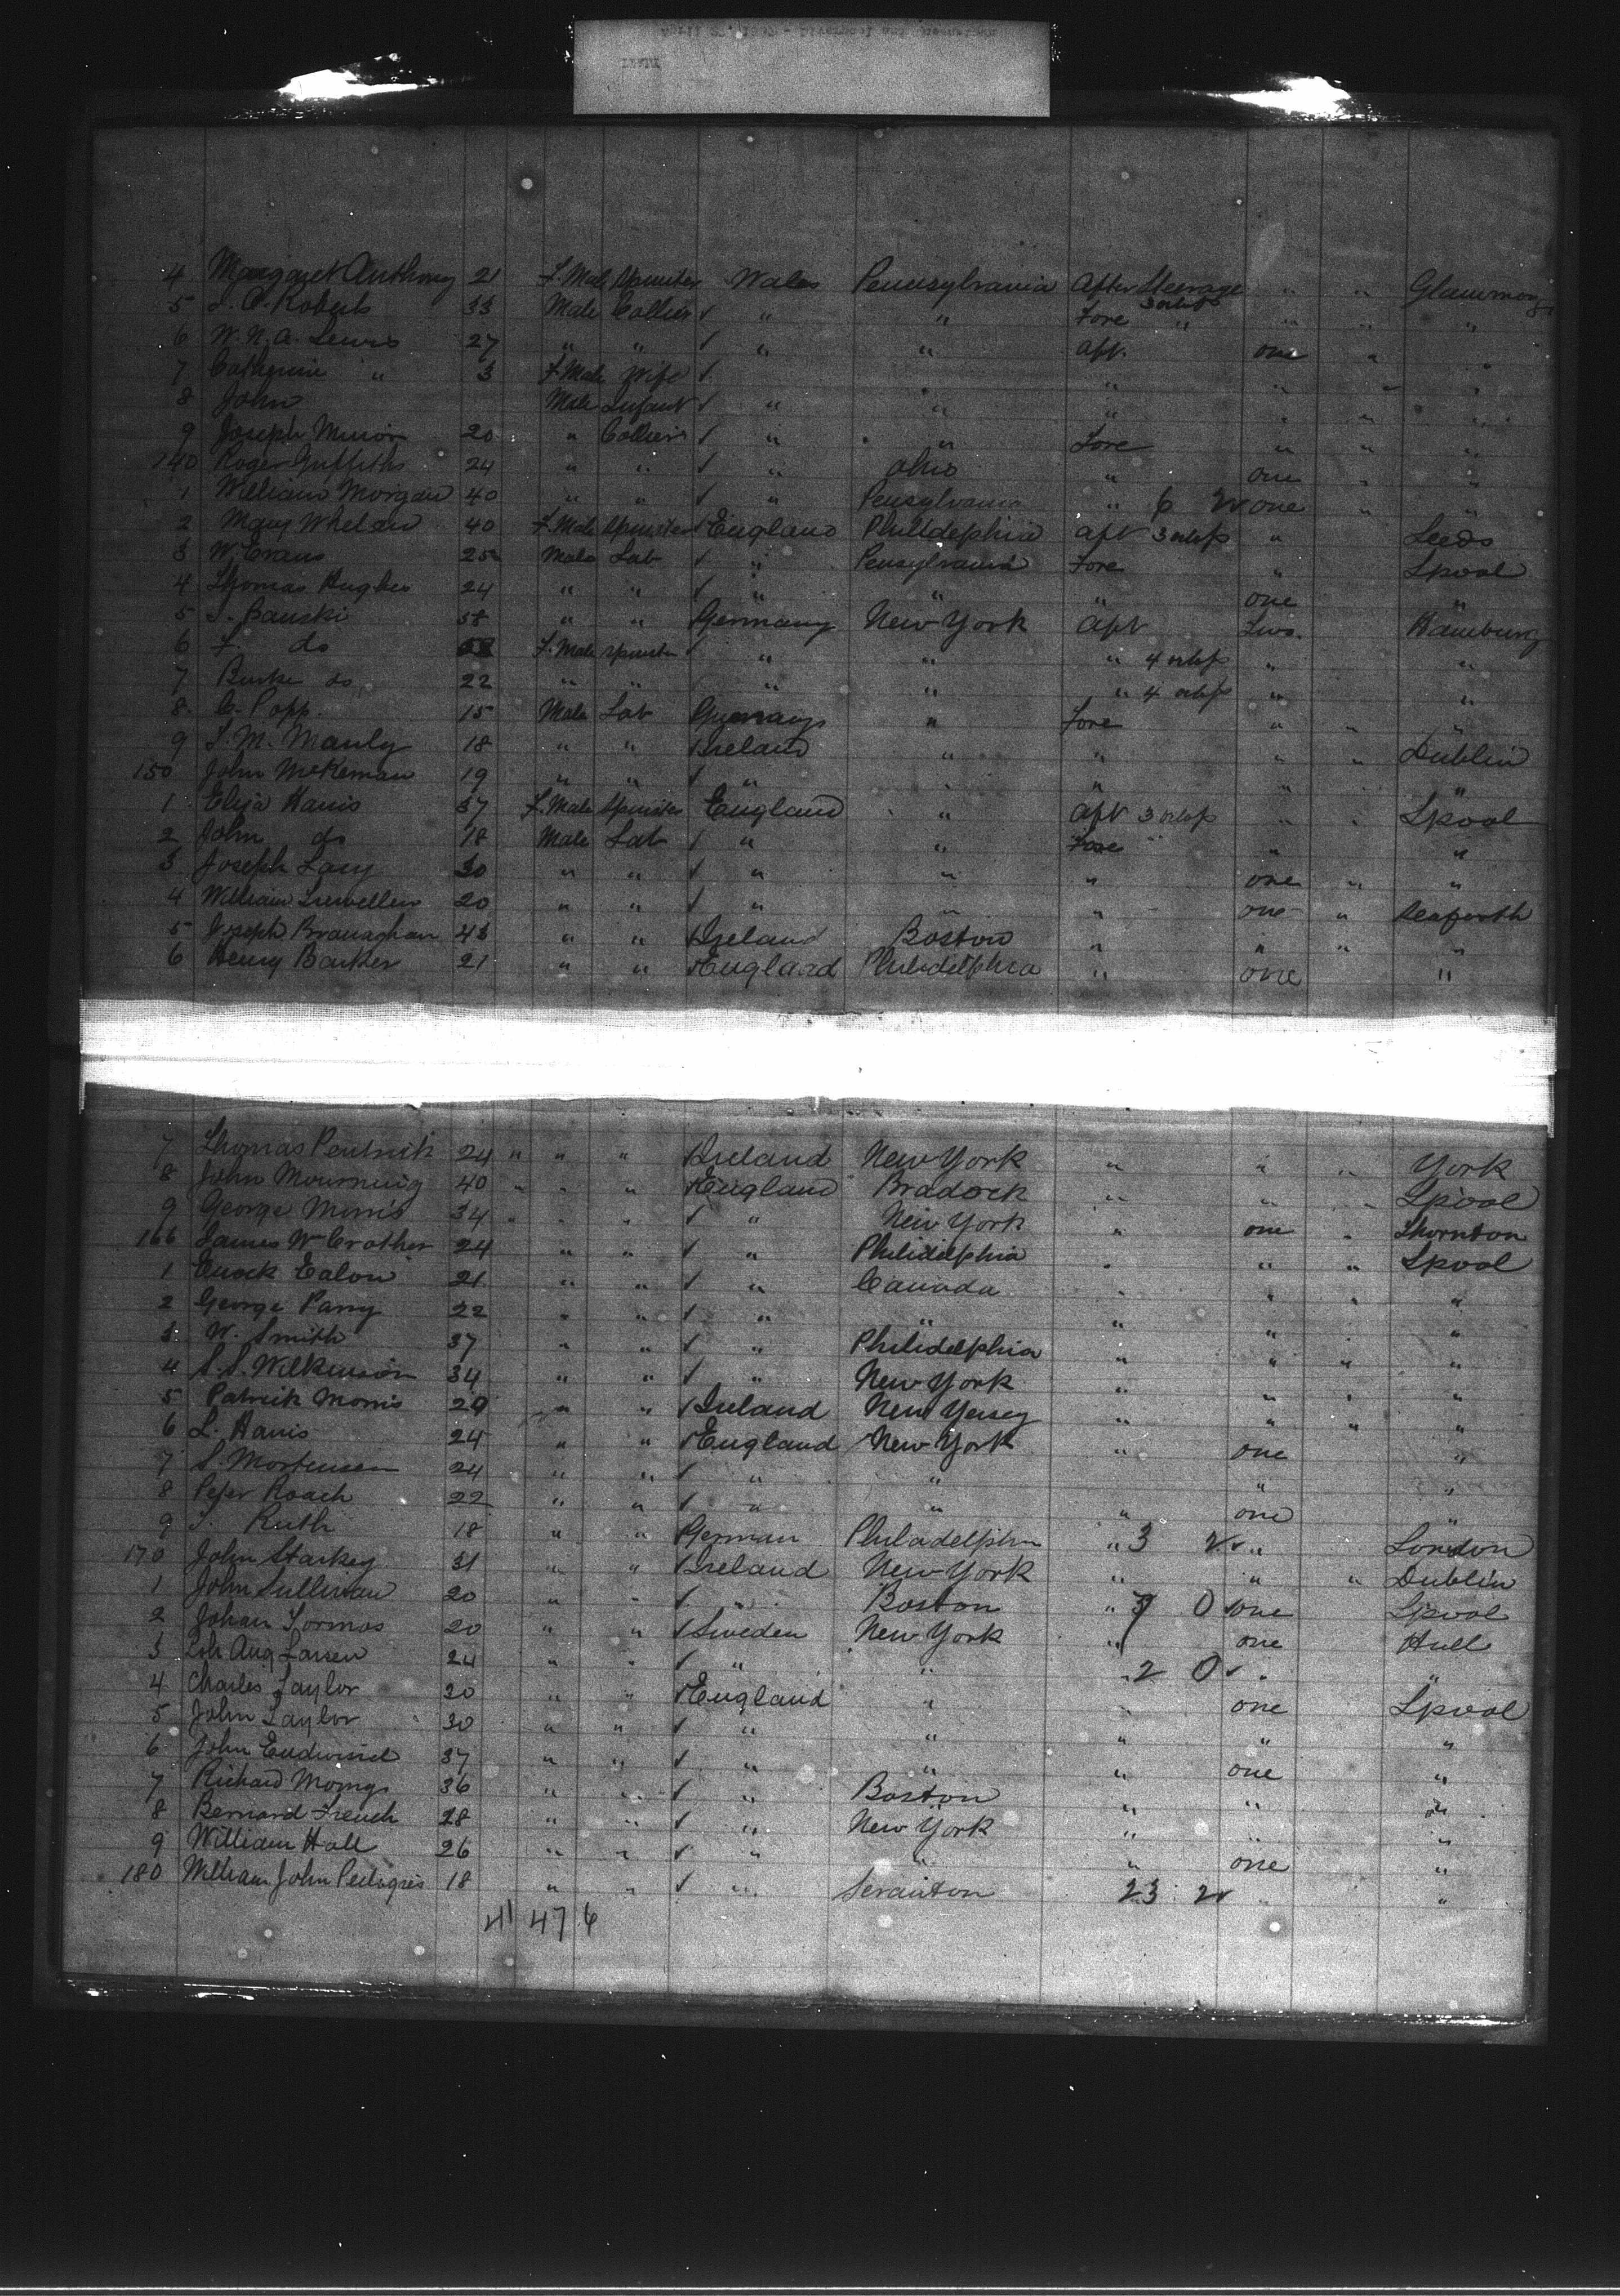 4 Margaret Anthony 21 F. Male Spinster Wales Pennsylvania After Steerage " " Glammog
5 J. O. Roberts 33 Male Collier √ " " Fore " " " "
6 W. N. A. Lewis 27 " " √ " " aft. one " "
7 Catherine " 3 F. Male Wife √ " " " "
8 John Male Infant √ " " " " " "
9 Joseph 20 " Collier √ " " Fore " " "
140 Roger Griffiths 24 " " √ " Ohio " one " "
1 William Morgan 40 " " √ " Pensylvania " 6 one " "
2 Mary Whelan 40 F. Male Spinster England Philldephia aft " Leeds
3 W. Evans 25 Male Lab √ " Pensylvania Fore " Lpool
4 Thomas Hughes 24 " " √ " " " one "
5 J. Bauski 58 " " Germany New York aft two Hamburg
6 F. do F. Male Spinster √ " " " 4 " "
7 do 22 " " " " " 4 " "
8 C. Popp 15 Male Lab Germany " Fore " " "
9 J. M. Manly 18 " " √ Ireland " " " " Dublin
150 John McKernan 19 " " √ " " " " " "
1 Eliza Harris 37 F. Male Spinster England " aft 3 " " Lpool
2 John do 18 Male Lab √ " " Fore " "
3 Joseph Lacy 30 " " √ " " " one " "
4 William Lrewellen 20 " " √ " " " one " Seaforth
5 Joseph Branaghan 43 " " √ Ireland Boston " " " "
6 Henry Barker 21 " " √ England Philidelphia " one "
7 Thomas 24 " " " √ Ireland New York " " " York
8 John Mourning 40 " " " √ England Bradock " " " Lpool
9 George Morris 34 " " " √ " New York " one " Thornton
166 James W Crother 24 " " √ " Philidelphia " " " Lpool
1 Enock Ealon 21 " " √ " Canada " " " "
2 George Parry 22 " " √ " " " " " "
3 W. Smith 37 " " √ " Philidelphia " " " "
4 S. S. Wilkinson 34 " " √ " New York " " " "
5 Patrick Morris 29 " " √ Ireland New Yersey " " " "
6 L. Harris 24 " " √ England New York " one "
7 S. Mortensen 24 " " √ " " " "
8 Peter Roach 22 " " √ " " " one "
9 J. Ruth 18 " " German Philadelphia " 3 " London
170 John Starkey 31 " " √ Ireland New York " " " Dublin
1 John Sullivan 20 " " √ " Boston " 0 one Lpool
2 Johan 20 " " √ Sweden New York " one Hull
3 Aug Larsen 24 " " √ " " " 2 0 √ " "
4 Charles Taylor 20 " " √ England " " one Lpool
5 John Taylor 30 " " √ " " " " "
6 John 37 " " √ " " " one "
7 Richard 36 " " √ " Boston " " "
8 Bernard French 28 " " √ " New York " " "
9 William Hall 26 " " √ " " " one "
180 William John 18 " " √ " Scranton 23 " "
47 6